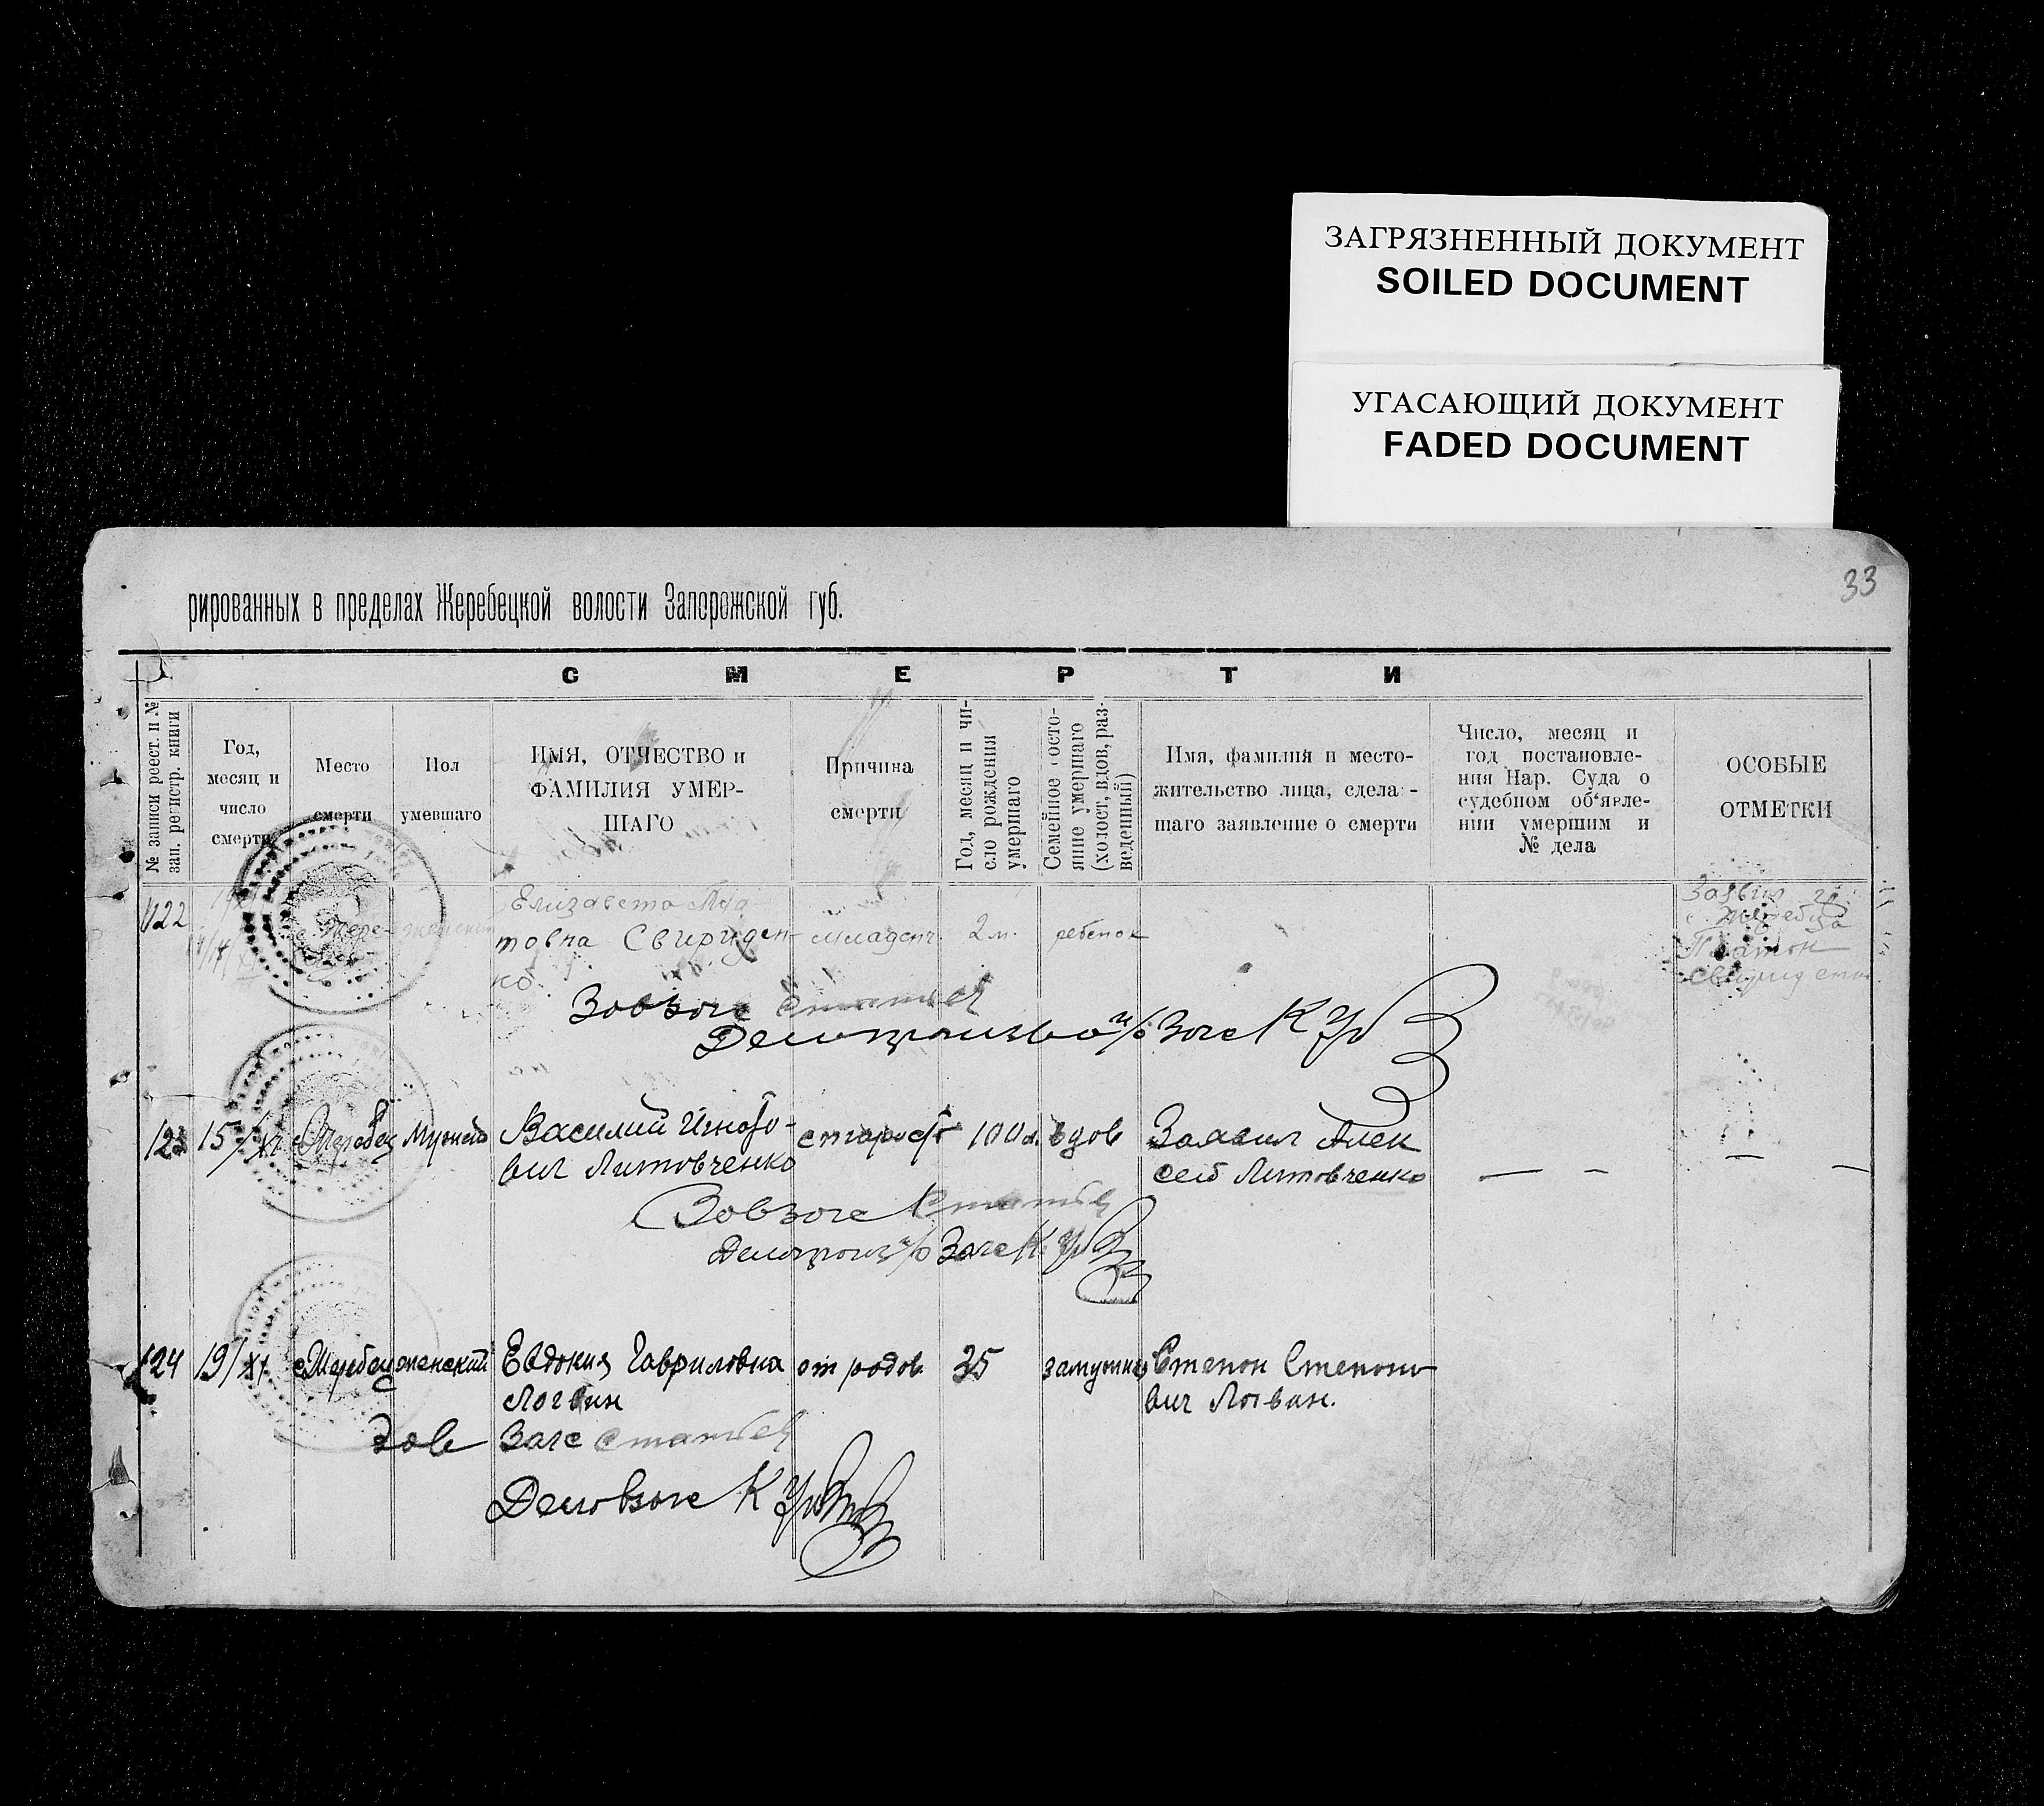 ЗАГРЯЗНЕННЫЙ ДОКУМЕНТ
SOILED DOCUMENT
УГАСАЮЩИЙ ДОКУМЕНТ
FADED DOCUMENT
33
рированных в пределах Жеребецкой волости Запорожской губ.
СМЕРТИ
№ записи реест. и №
зап. регистр. книги
Год,
месяц и
число
смерти
Место
смерти
Пол
умевшаго
ИМЯ, ОТЧЕСТВО и
ФАМИЛИЯ УМЕР-
ШАГО
Причина
смерти
Год, месяц и чи-
сло рождения
умершаго
Семейное состо-
яние умершаго
(холост, вдов, раз-
веденный)
Имя, фамилия и место-
жительство лица, сделав-
шаго заявление о смерти
Число, месяц и
год постановле-
ния Нар. Суда о
судебном об'явле-
нии умершим и
№ дела
ОСОБЫЕ
ОТМЕТКИ
122
женский
Елизавета Пла
товна Свириден-
ко
младенч.
2 м.
ребенок
Заявил гр.
с. Жеребца
Платон
Свириденко
Завзагс
Делопроизво
Загс
123
15/XI
с. Жеребец
Мужской
Василий
вич Литовченко
старость
100 л.
вдов
Заявил Алек
сей Литовченко
Завзагс
Делопроиз
Загс
124
19/XI
с. Жеребец
женский
Евдокия Гавриловна
Логвин
от родов
35
замужняя
Степан Степано
вич Логвин.
Зав Загс